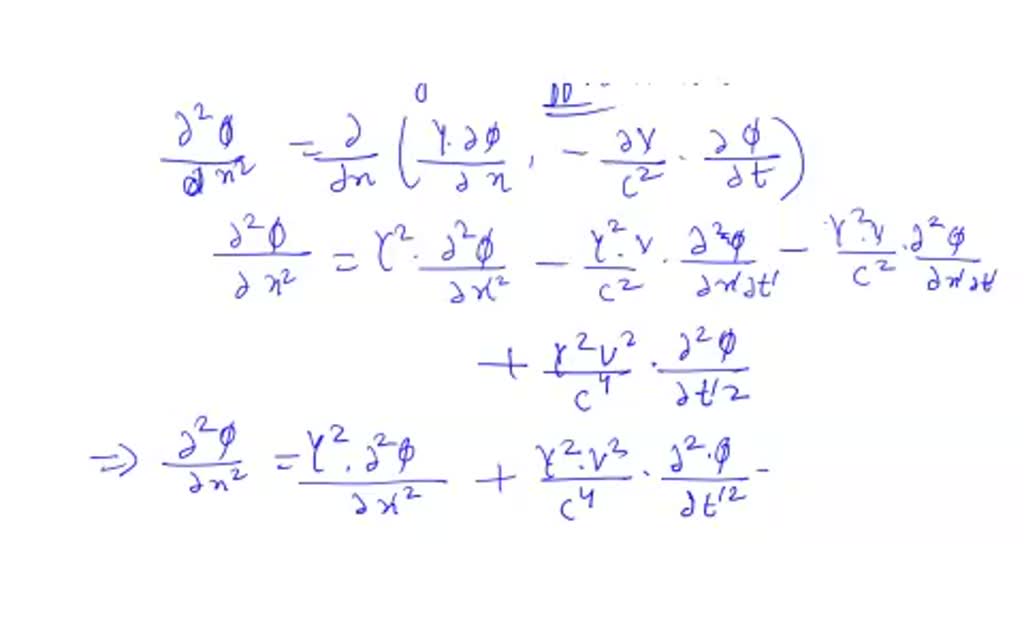 ∂²φ/∂x² = ∂/∂x ( γ·∂φ/∂x , − ∂γ/c² · ∂φ/∂t )
∂²φ/∂x² = γ² · ∂²φ/∂x'² − γ²·v/c² · ∂²φ/∂x'∂t' − γ²·v/c² · ∂²φ/∂x'∂t'
+ γ²v²/c⁴ · ∂²φ/∂t'²
⇒ ∂²φ/∂x² = γ²·∂²φ/∂x'² + γ²·v²/c⁴ · ∂²·φ/∂t'² −